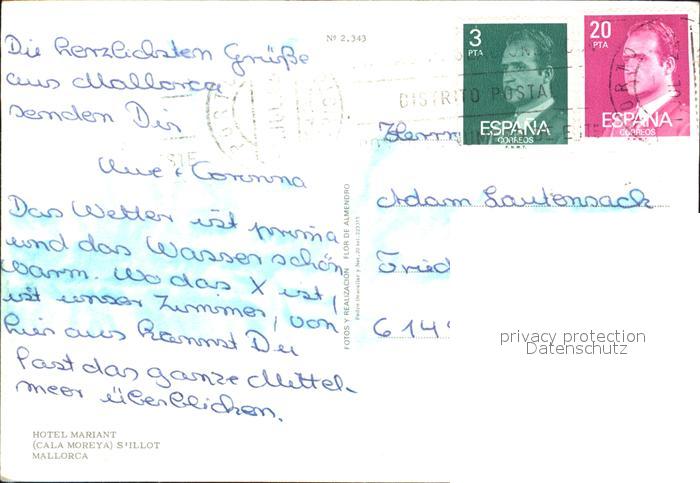 Die herzlichsten Grüße
aus Mallorca
senden Dir
Uwe + Corinna
Das Wetter ist prima
und das Wasser schön
warm. Wo das X ist,
ist unser Zimmer, von
hier aus kannst Du
fast das ganze Mittel-
meer überblicken.
HOTEL MARIANT
(CALA MOREYA) S'ILLOT
MALLORCA
Nº 2.343
FOTOS Y REALIZACION FLOR DE ALMENDRO
3
PTA
ESPAÑA
CORREOS
F.N.M.T.
20
PTA
ESPAÑA
CORREOS
DISTRITO POSTA
Herrn
Adam Lautensack
Fried
614
privacy protection
Datenschutz